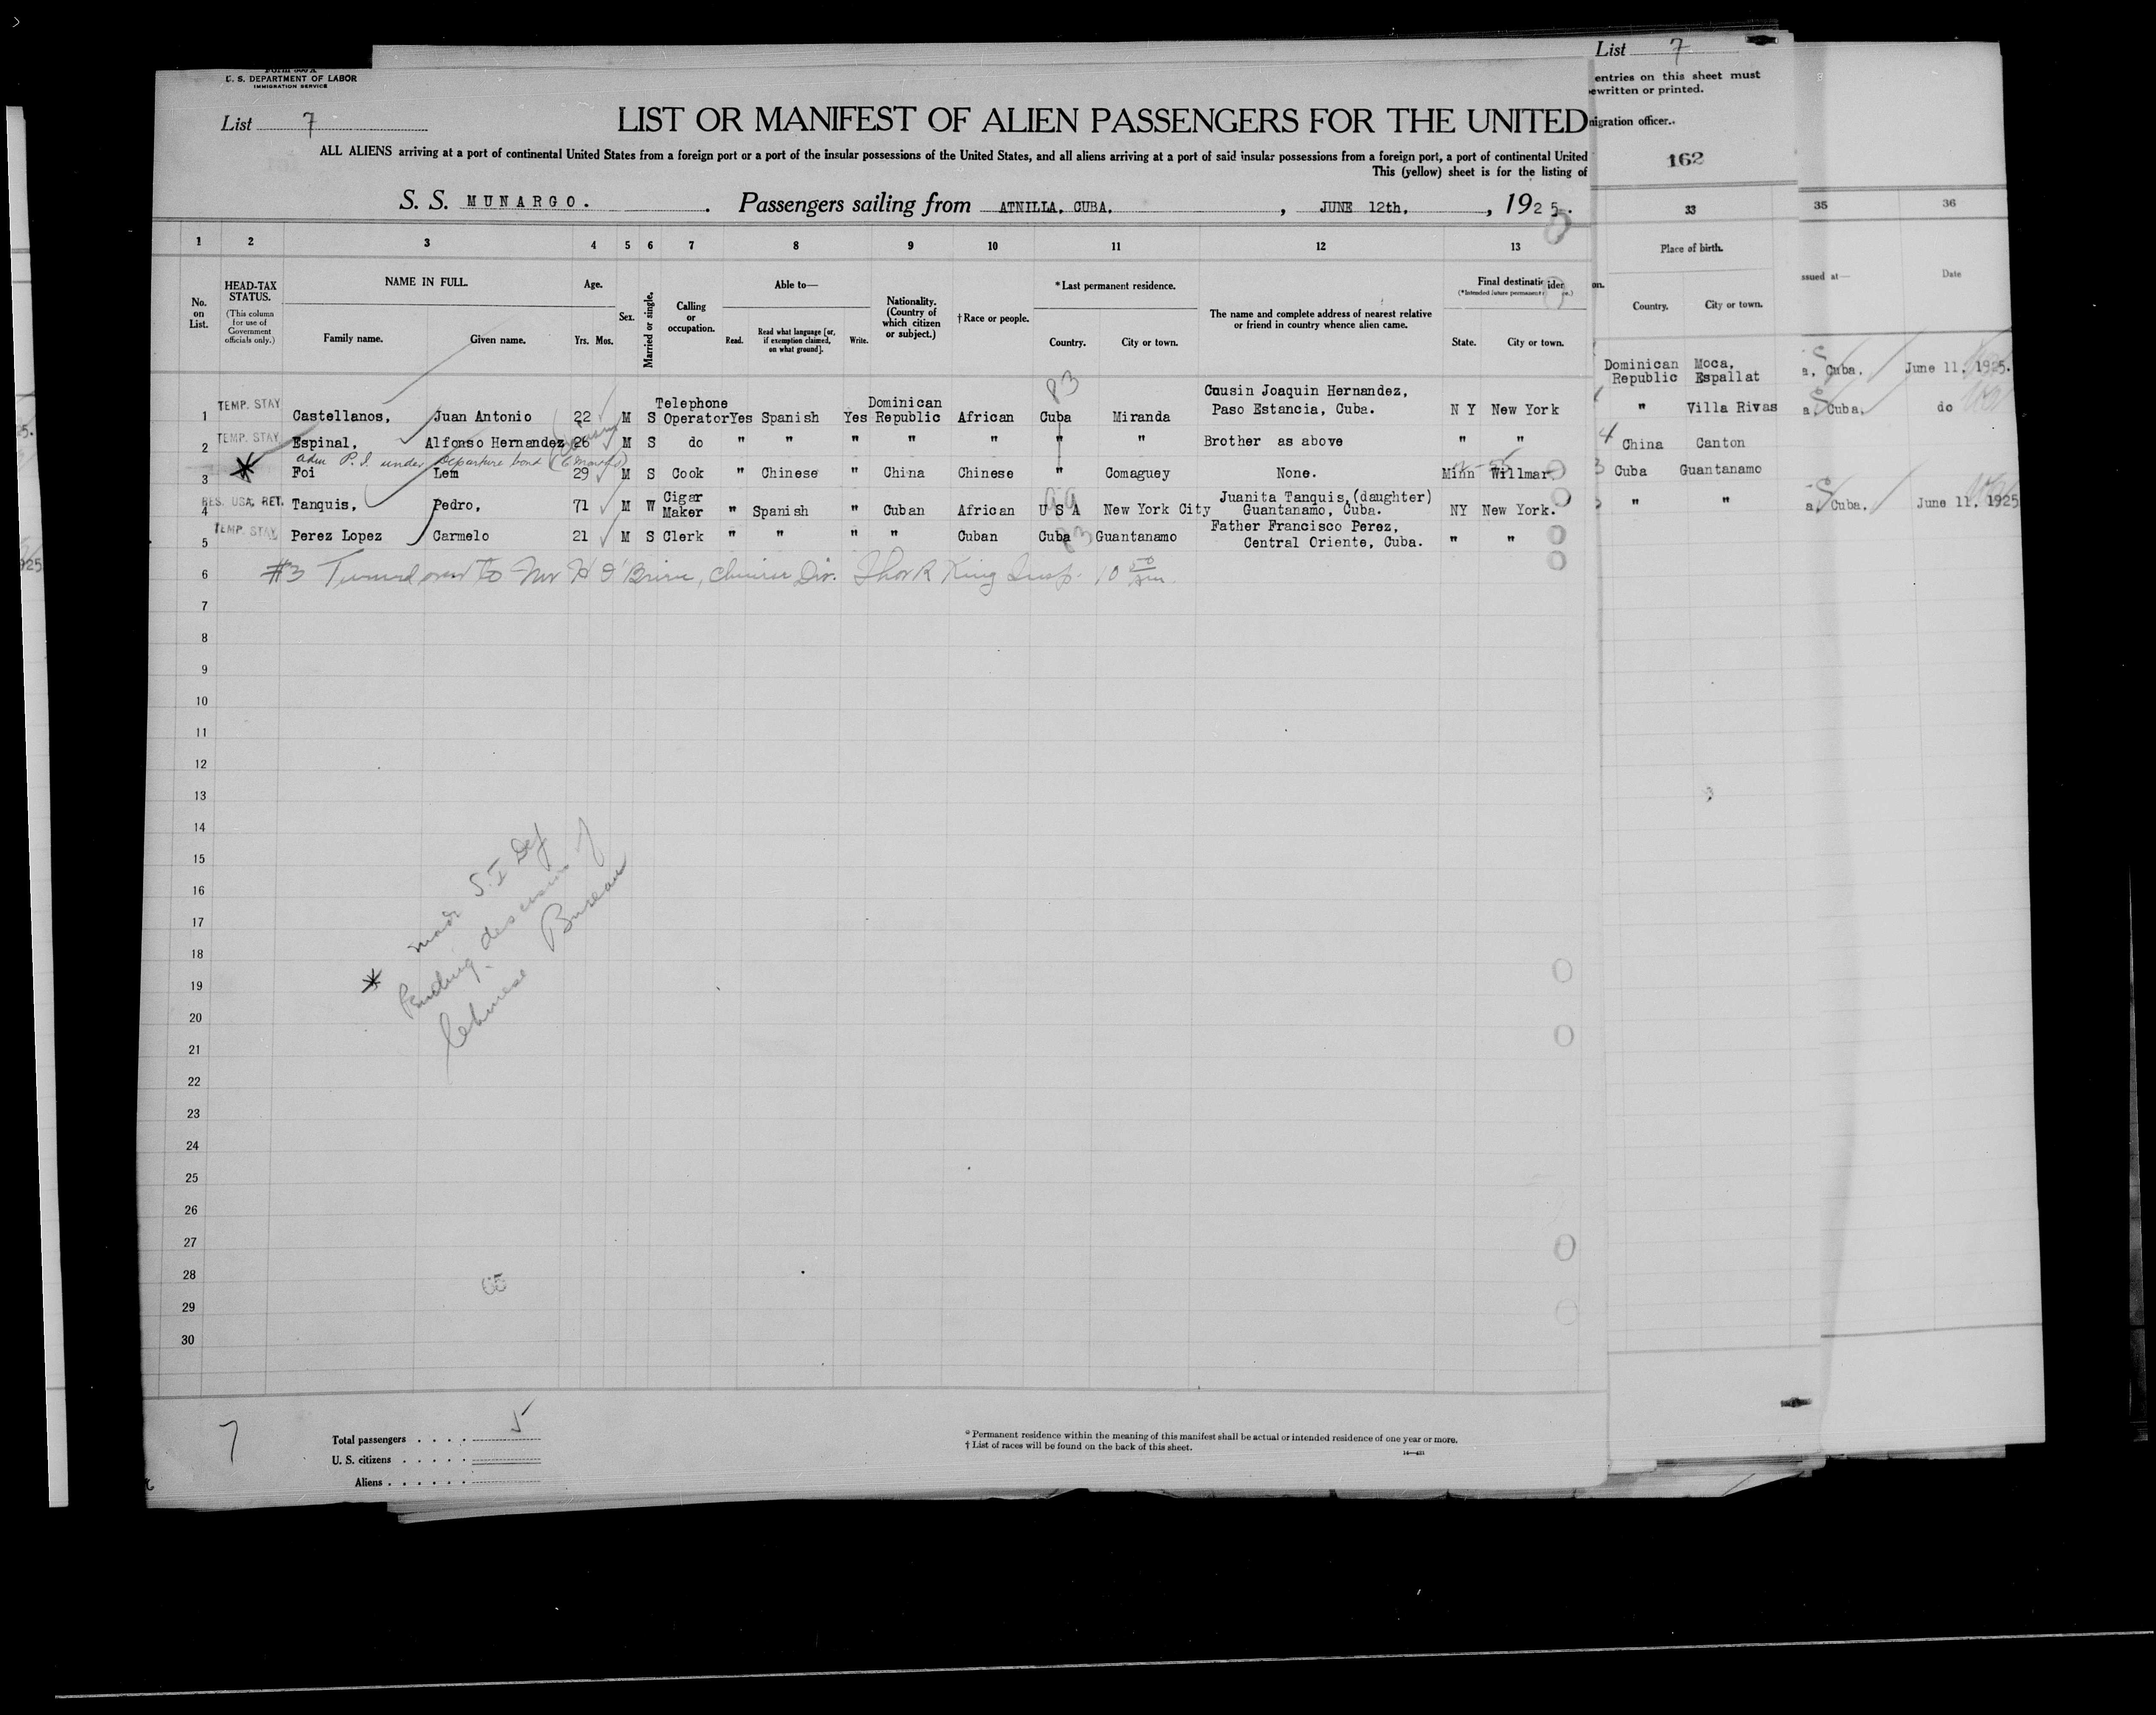 Form 500 A
U. S. DEPARTMENT OF LABOR
IMMIGRATION SERVICE
List 7
LIST OR MANIFEST OF ALIEN PASSENGERS FOR THE UNITED
ALL ALIENS arriving at a port of continental United States from a foreign port or a port of the insular possessions of the United States, and all aliens arriving at a port of said insular possessions from a foreign port, a port of continental United
This (yellow) sheet is for the listing of
S. S. MUNARGO. Passengers sailing from ATNILLA, CUBA, JUNE 12th, 1925.
List 7
entries on this sheet must
ewritten or printed.
migration officer.
162
1 2 3 4 5 6 7 8 9 10 11 12 13 33 35 36
No. on List.
HEAD-TAX STATUS.
(This column for use of Government officials only.)
NAME IN FULL.
Family name. Given name.
Age.
Yrs. Mos.
Sex.
Married or single.
Calling or occupation.
Able to—
Read. Read what language [or, if exemption claimed, on what ground]. Write.
Nationality. (Country of which citizen or subject.)
†Race or people.
*Last permanent residence.
Country. City or town.
The name and complete address of nearest relative or friend in country whence alien came.
Final destination
(*Intended future permanent
State. City or town.
Place of birth.
Country. City or town.
ssued at—
Date
1 TEMP. STAY Castellanos, Juan Antonio 22 M S Telephone Operator Yes Spanish Yes Dominican Republic African Cuba Miranda Cousin Joaquin Hernandez, Paso Estancia, Cuba. N Y New York Dominican Republic Moca, Espallat a, Cuba, June 11, 1925.
83
2 TEMP. STAY Espinal, Alfonso Hernandez 26 M S do " " " " " " " Brother as above " " " Villa Rivas a, Cuba, do
adm P.I. under departure bond (6 months)
3 Foi Lem 29 M S Cook " Chinese " China Chinese " Comaguey None. Minn Willmar China Canton
4 RES. USA. RET. Tanquis, Pedro, 71 M W Cigar Maker " Spanish " Cuban African U S A New York City Juanita Tanquis, (daughter) Guantanamo, Cuba. NY New York. Cuba Guantanamo
5 TEMP. STAY Perez Lopez Carmelo 21 M S Clerk " " " " Cuban Cuba Guantanamo Father Francisco Perez, Central Oriente, Cuba. " " " " a, Cuba, June 11, 1925
83
6 #3 Turned over to Mr H O'Brien, Chinese Div. Thor R King Insp. 10 50 am.
7
8
9
10
11
12
13
14
15
16
17
18
19
20
21
22
23
24
25
26
27
28
29
30
* made S.I Def
Pending decision of
Chinese Bureau
7
Total passengers 5
U. S. citizens
Aliens
* Permanent residence within the meaning of this manifest shall be actual or intended residence of one year or more.
† List of races will be found on the back of this sheet.
14—421